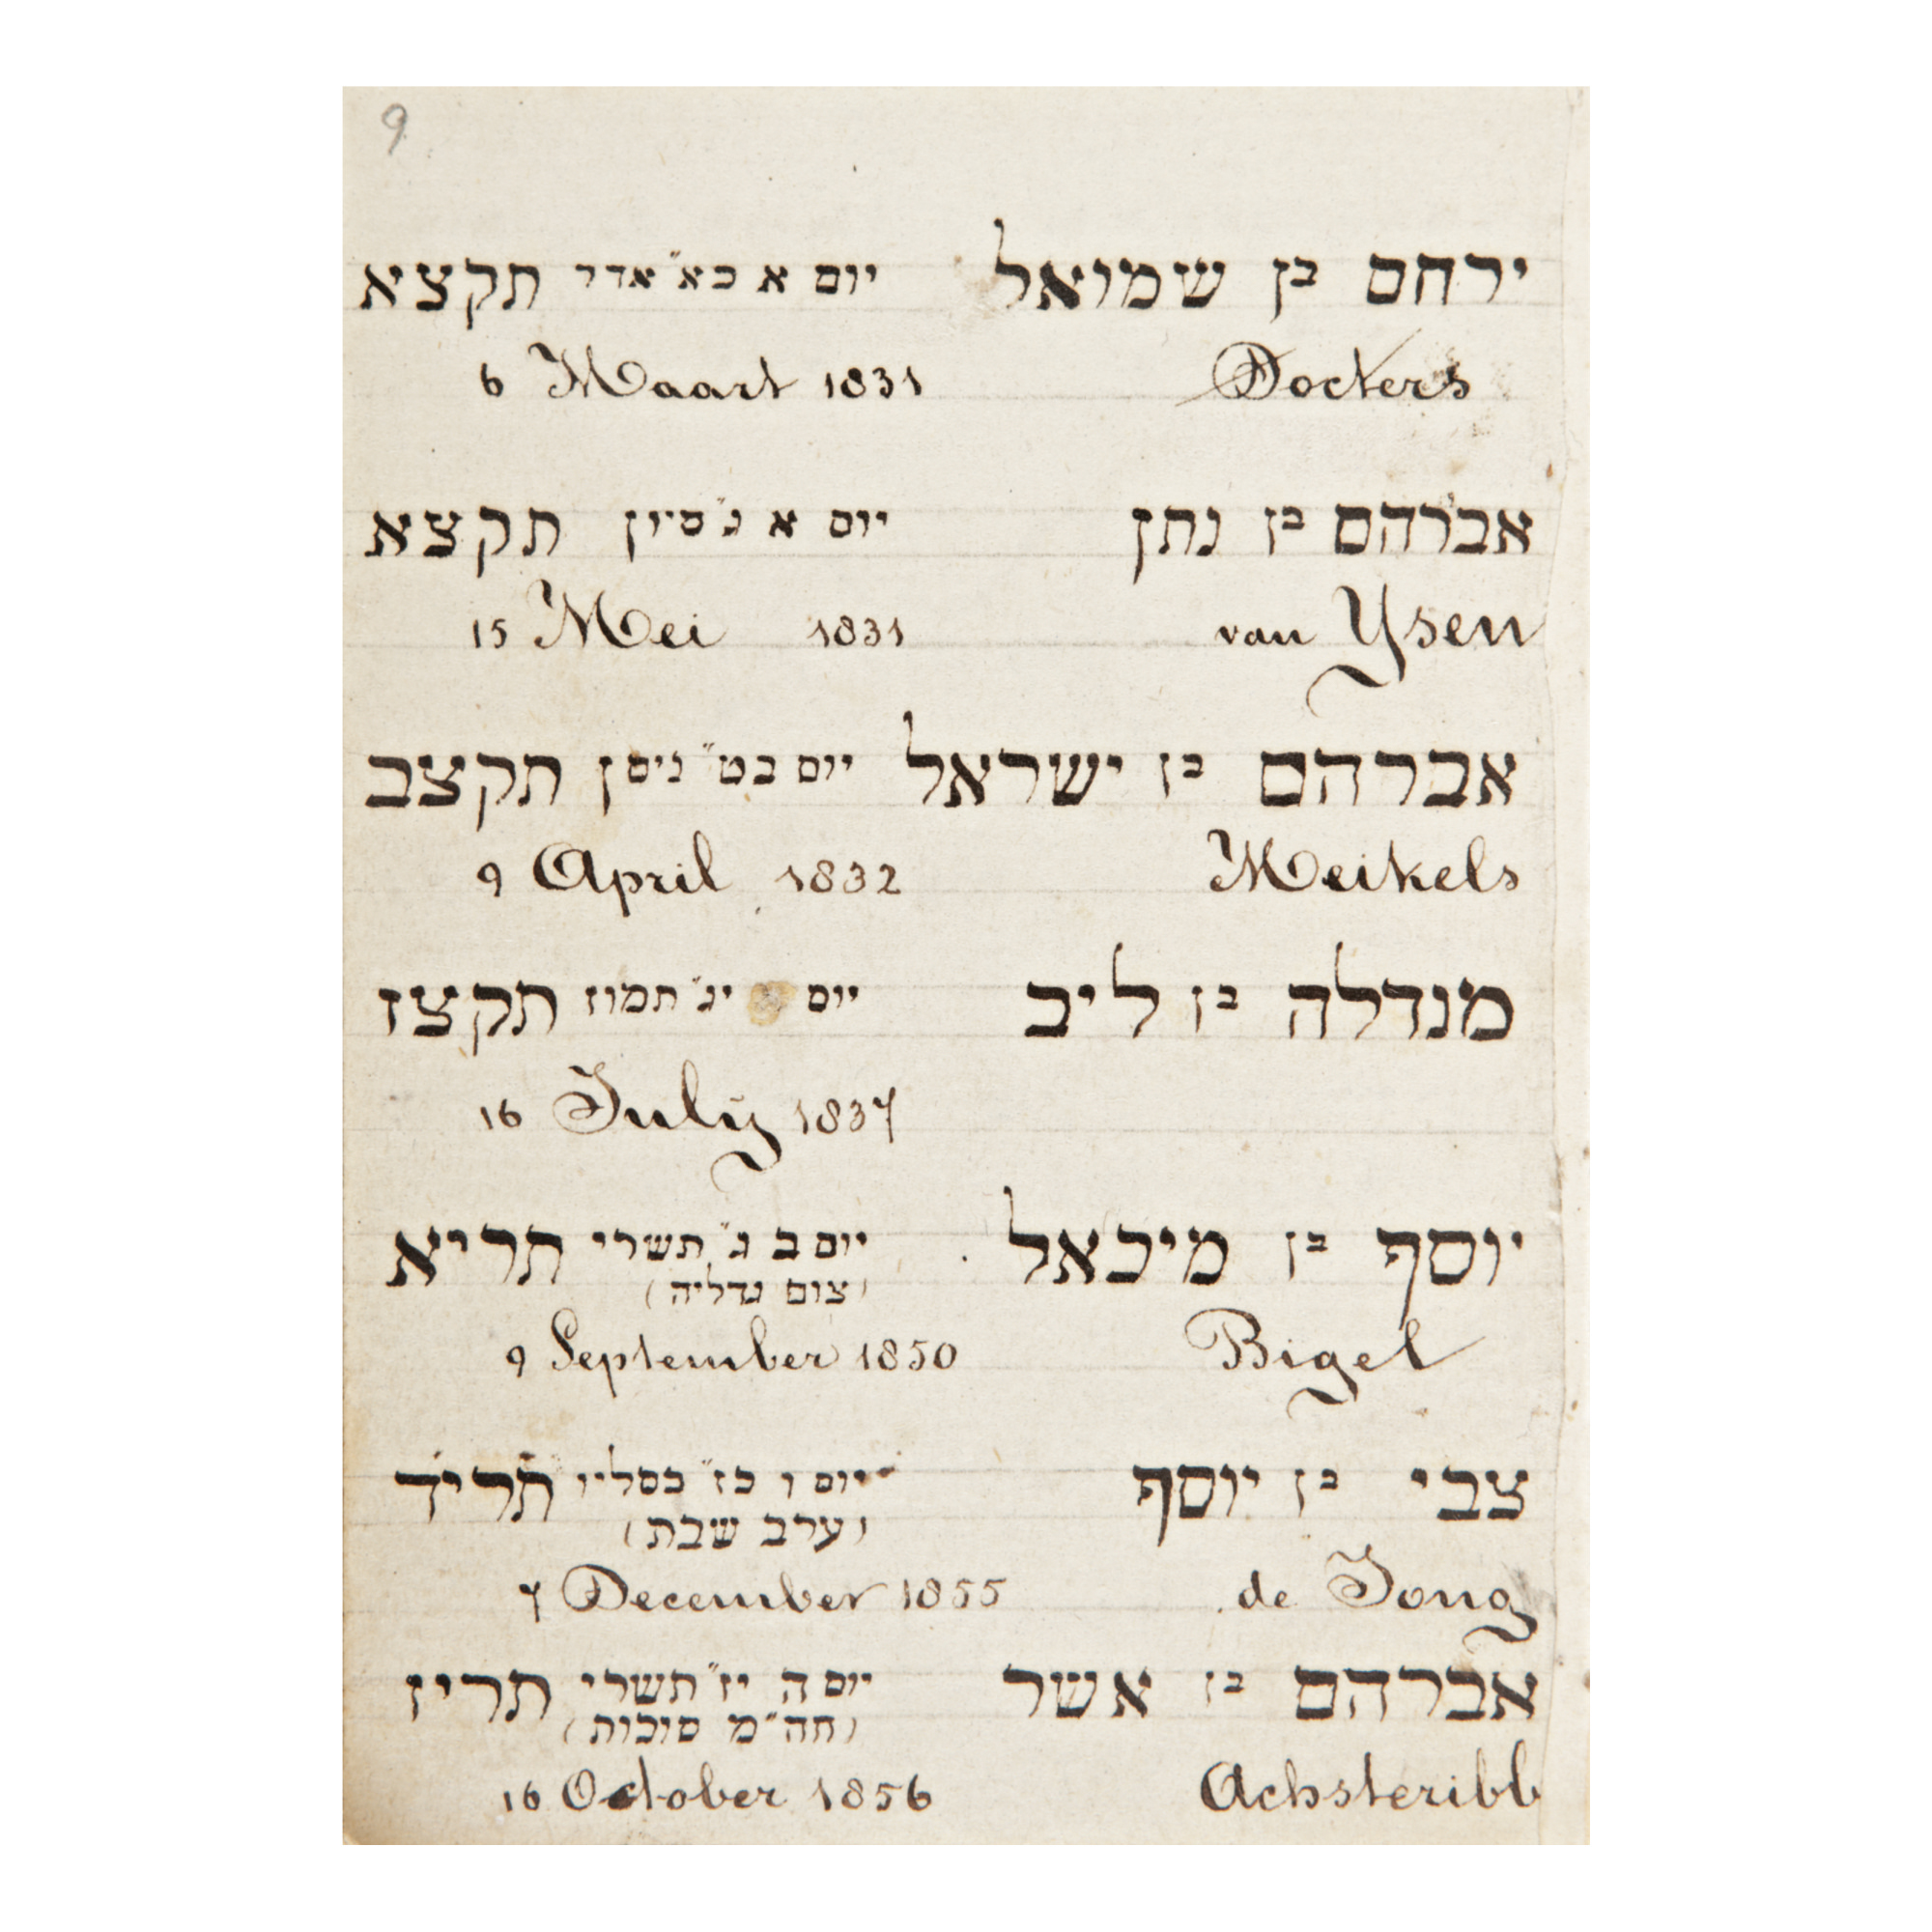 9
ירחם בן שמואל יום א כא״ אדר תקצא
Dockers 6 Maart 1831
אברהם בן נתן יום א ג״ סיון תקצא
van Ysen 15 Mei 1831
אברהם בן ישראל יום כט״ ניסן תקצב
Meikels 9 April 1832
מנדלה בן ליב יום יג״ תמוז תקצז
16 July 1837
יוסף בן מיכאל יום ב ג״ תשרי תריא
(צום גדליה)
Bigel 9 September 1850
צבי בן יוסף יום ו כז״ כסליו תריד
(ערב שבת)
de Jong 7 December 1855
אברהם בן אשר יום ה יז״ תשרי תריז
(חה״מ סוכות)
Achsteribb 16 October 1856